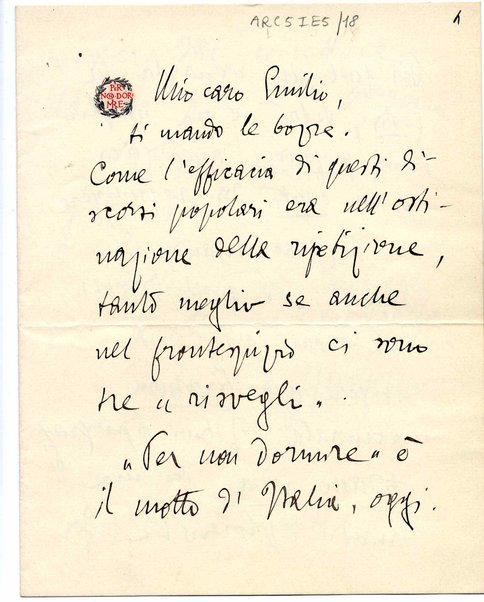 ARC5IE5/18
PER
NON DOR
MIRE
Mio caro Emilio,
ti mando le bozze.
Come l'efficacia di questi di-
scorsi popolari era nell'osti-
nazione della ripetizione,
tanto meglio se anche
nel frontespizio ci sono
tre "risvegli".
"Per non dormire" è
il motto di Italia, oggi.